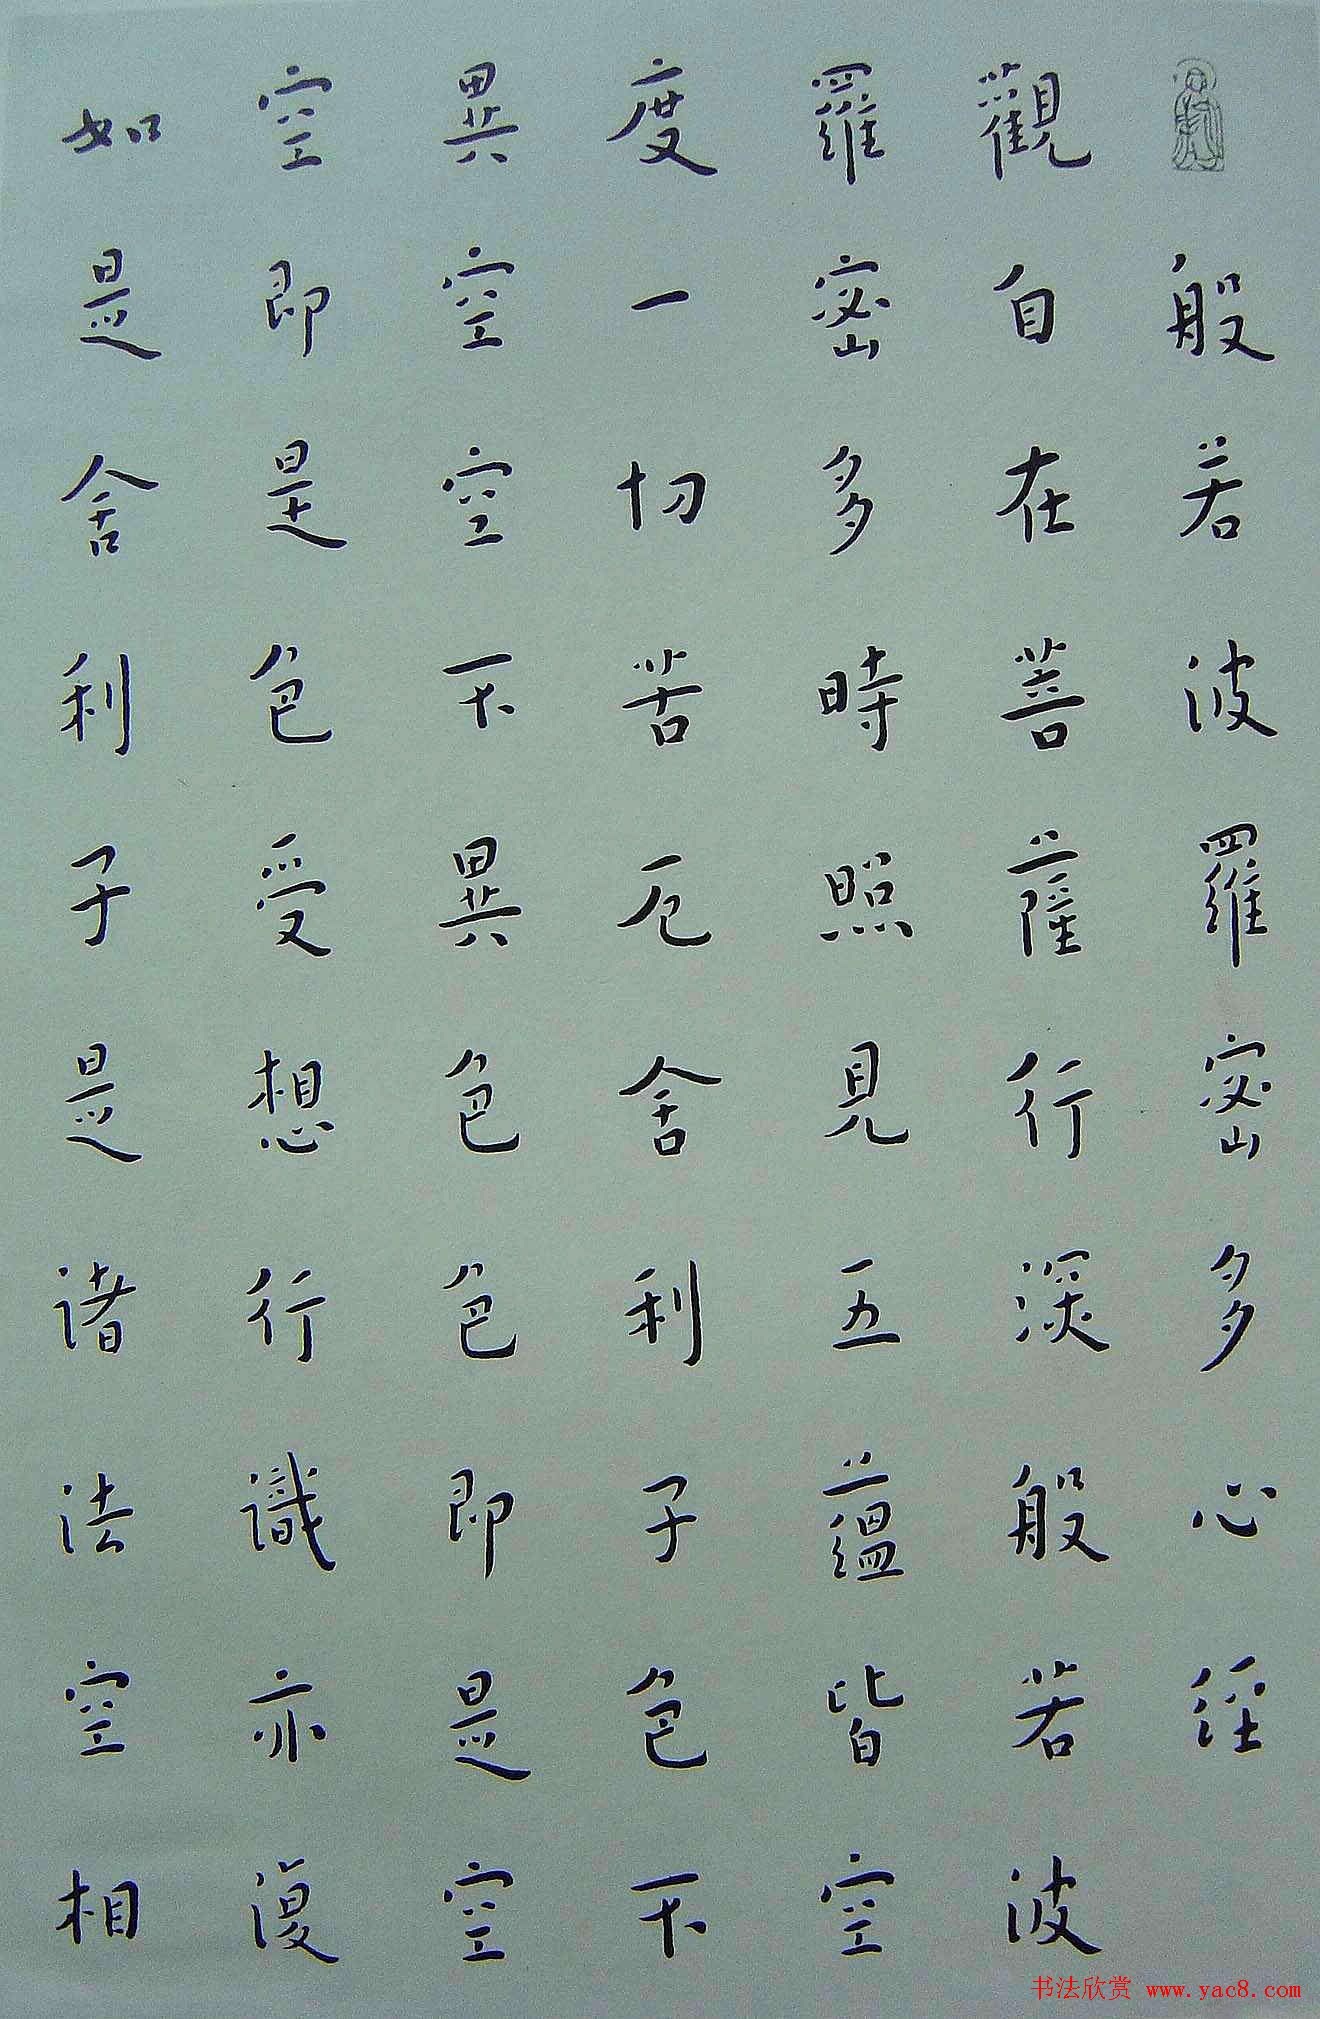 般若波羅蜜多心經
觀自在菩薩行深般若波
羅蜜多時照見五蘊皆空
度一切苦厄舍利子色不
異空空不異色色即是空
空即是色受想行識亦復
如是舍利子是諸法空相
书法欣赏 www.yac8.com